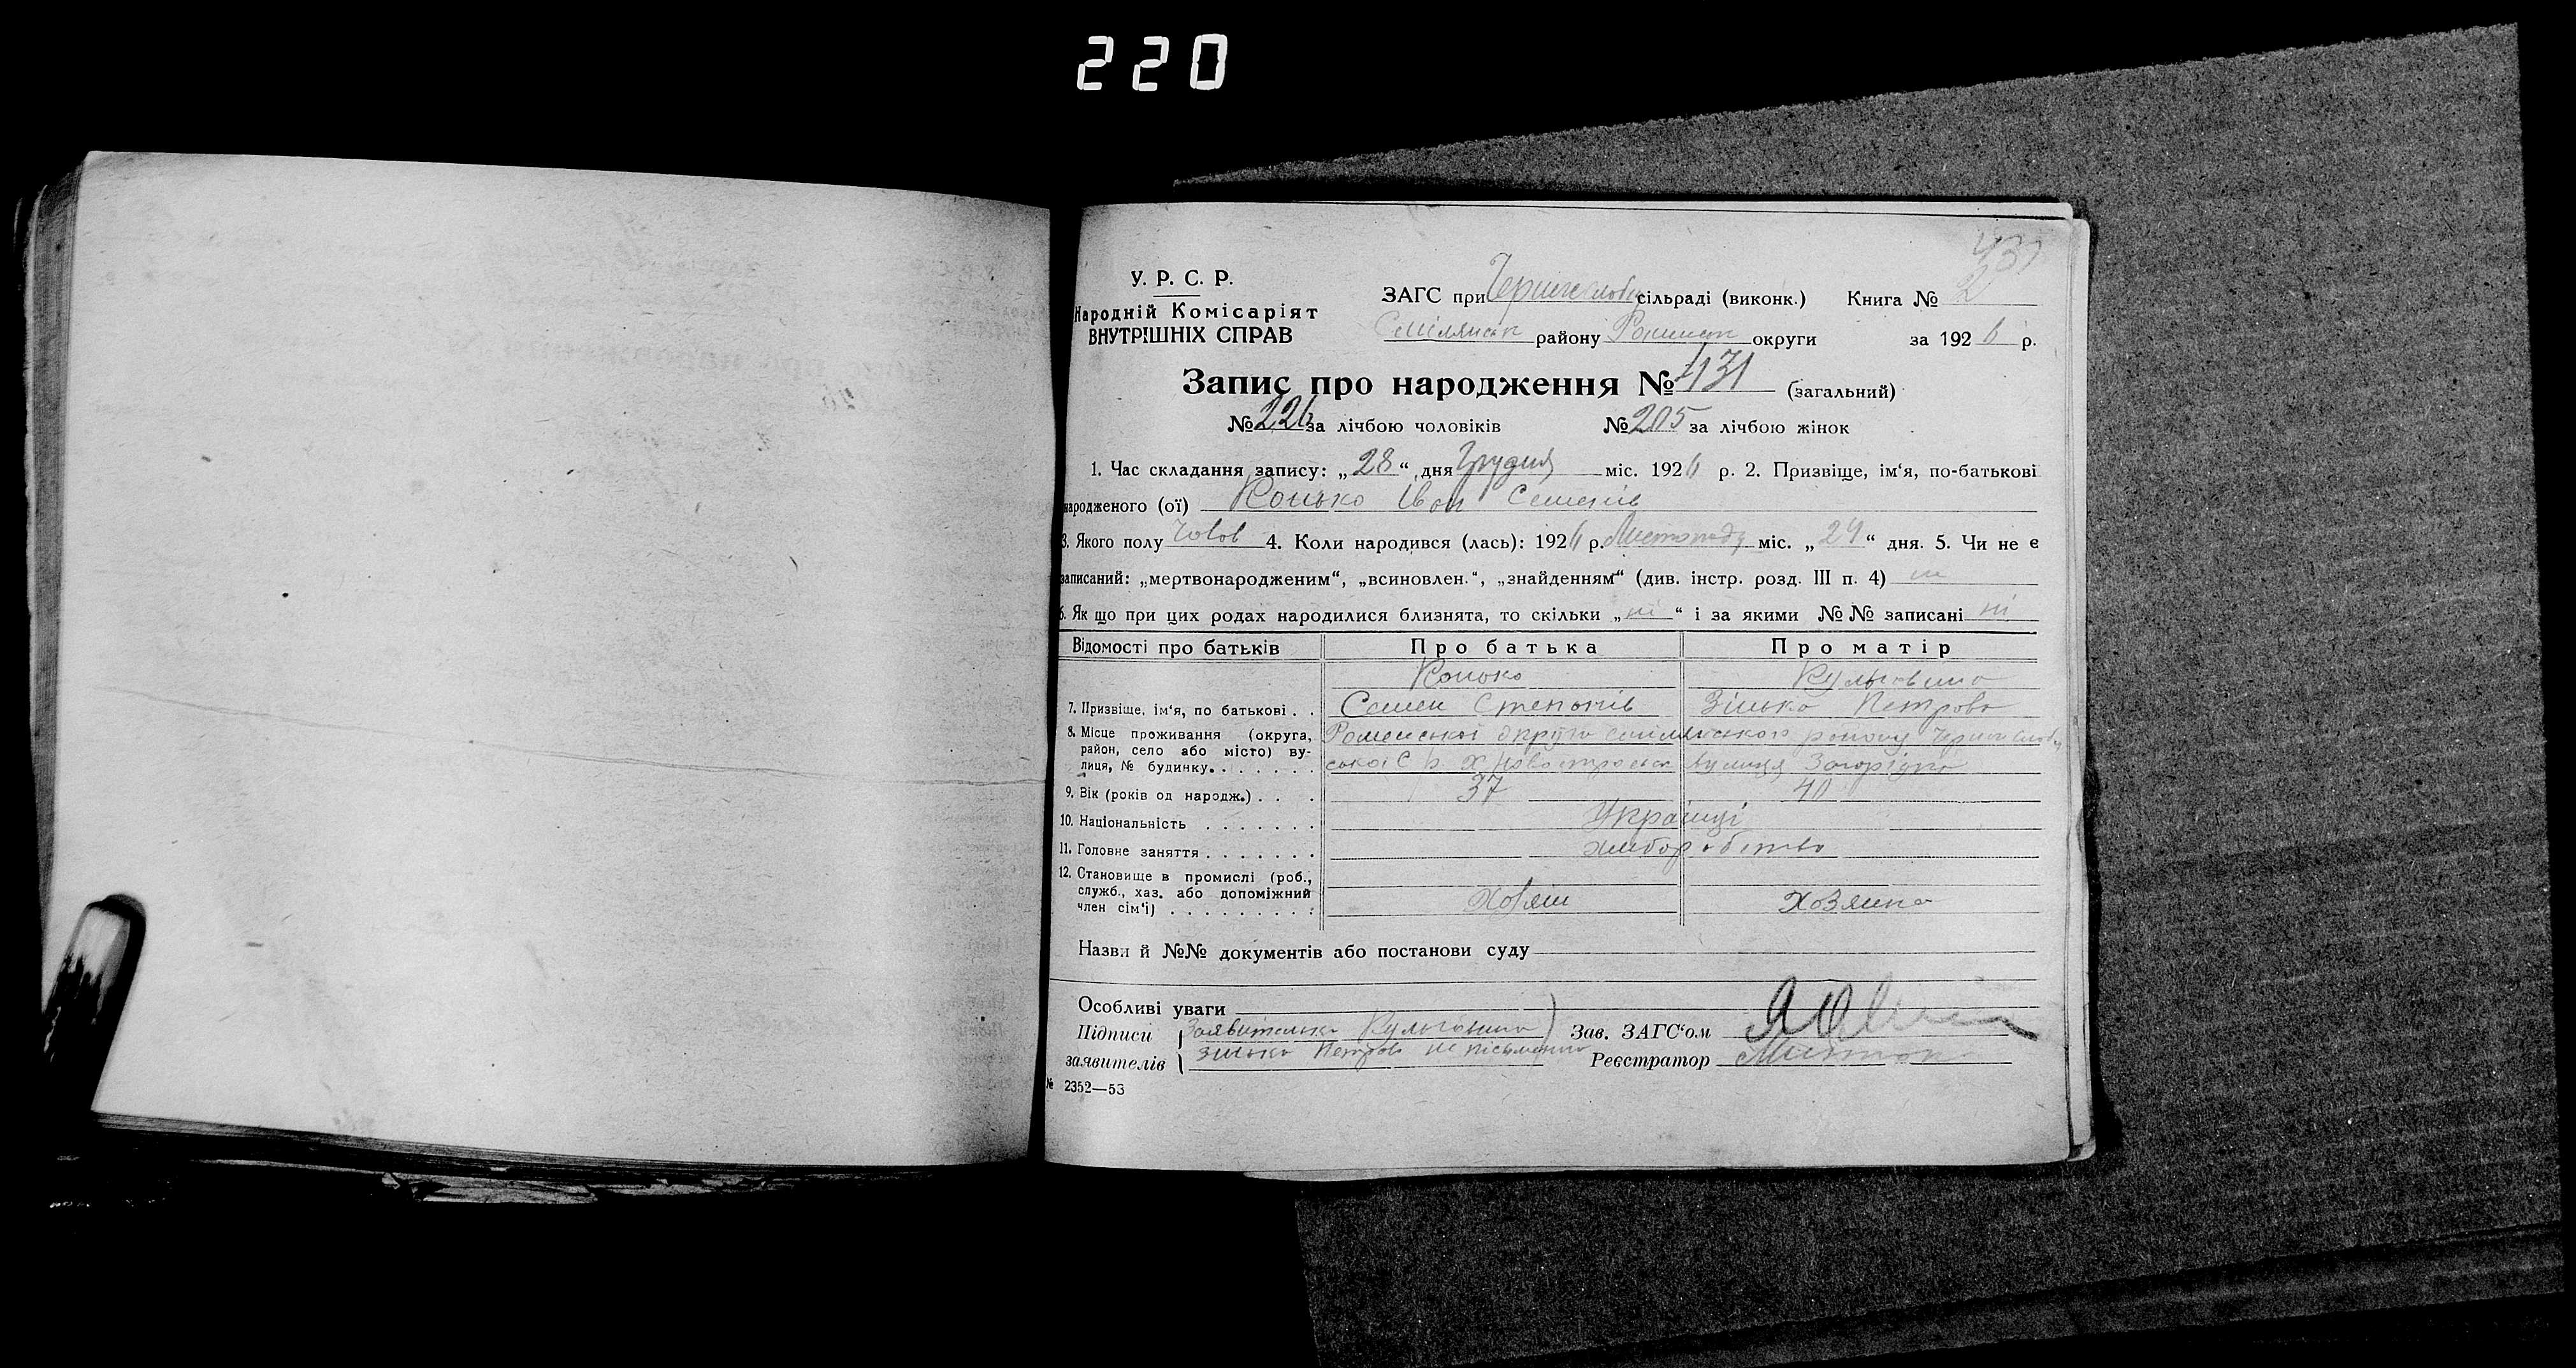 220
431
У. Р. С. Р.
Народній Комісаріят
ВНУТРІШНІХ СПРАВ
ЗАГС при сільраді (виконк.) Книга № 2
Смілянськ району Роменськ округи за 1926 р.
Запис про народження № 431 (загальний)
№ 226 за лічбою чоловіків № 205 за лічбою жінок
1. Час складання запису: „28“ дня Грудня міс. 1926 р. 2. Призвіще, ім‘я, по-батькові
народженого (ої) Конько Іван Семенів
3. Якого полу чолов 4. Коли народився (лась): 1926 р. Листопаду міс. „24“ дня. 5. Чи не є
записаний: „мертвонародженим“, „всиновлен.“, „знайденням“ (див. інстр. розд. III п. 4) ні
6. Як що при цих родах народилися близнята, то скільки „ні“ і за якими №№ записані ні
Відомості про батьків Про батька Про матір
Конько
7. Призвіще, ім‘я, по батькові . . Семен Степанів Зінька Петрова
8. Місце проживання (округа, район, село або місто) вулиця, № будинку. Роменської округи Смілянського району
вулиця
9. Вік (років од народж.) . . . 37 40
10. Національність . . . . . . . Українці
11. Головне заняття . . . . . . . хліборобство
12. Становище в промислі (роб.,
служб., хаз. або допоміжний
член сім‘ї) . . . . . . . . . : Хозяін Хозяйка
Назви й №№ документів або постанови суду
Особливі уваги
Підписи Заявителька Зав. ЗАГС‘ом
заявителів Зінька Петрова не письменна Реєстратор
№ 2352—53